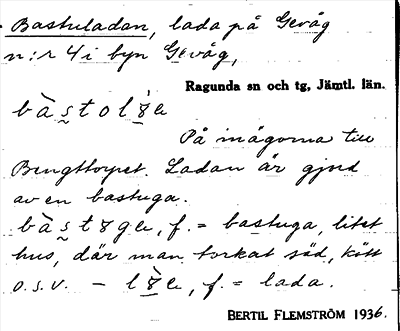 Bastuladan, lada på Gevåg
n:r 4 i byn Gevåg,
Ragunda sn och tg, Jämtl. län.
På inägorna till
Bengttorpet. Ladan är gjord
av en bastuga.
f. = bastuga, litet
hus, där man torkat säd, kött
o.s.v. – f. = lada.
BERTIL FLEMSTRÖM 1936.